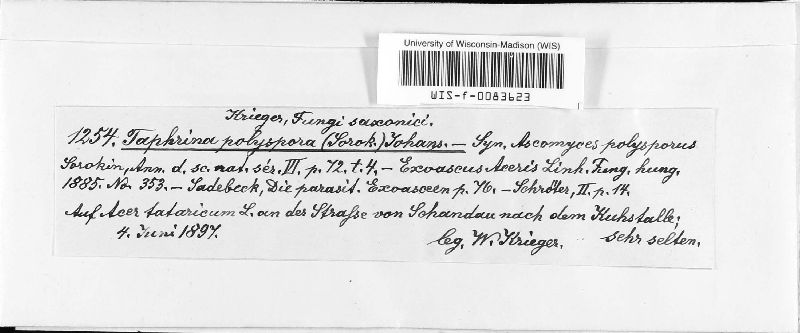 University of Wisconsin-Madison (WIS)
WIS-f-0083623
Krieger, Fungi saxonici.
1254. Taphrina polyspora (Sorok.) Johans. — Syn. Ascomyces polysporus
Sorokin, Ann. d. sc. nat. sér. VI. p. 72. t. 4. — Exoascus Aceris Linh. Fung. hung.
1885. No. 353. — Sadebeck, Die parasit. Exoasceen p. 76. — Schröter, II. p. 14.
Auf Acer tataricum L. an der Straße von Schandau nach dem Kuhstalle;
4. Juni 1897. leg. W. Krieger. sehr selten.